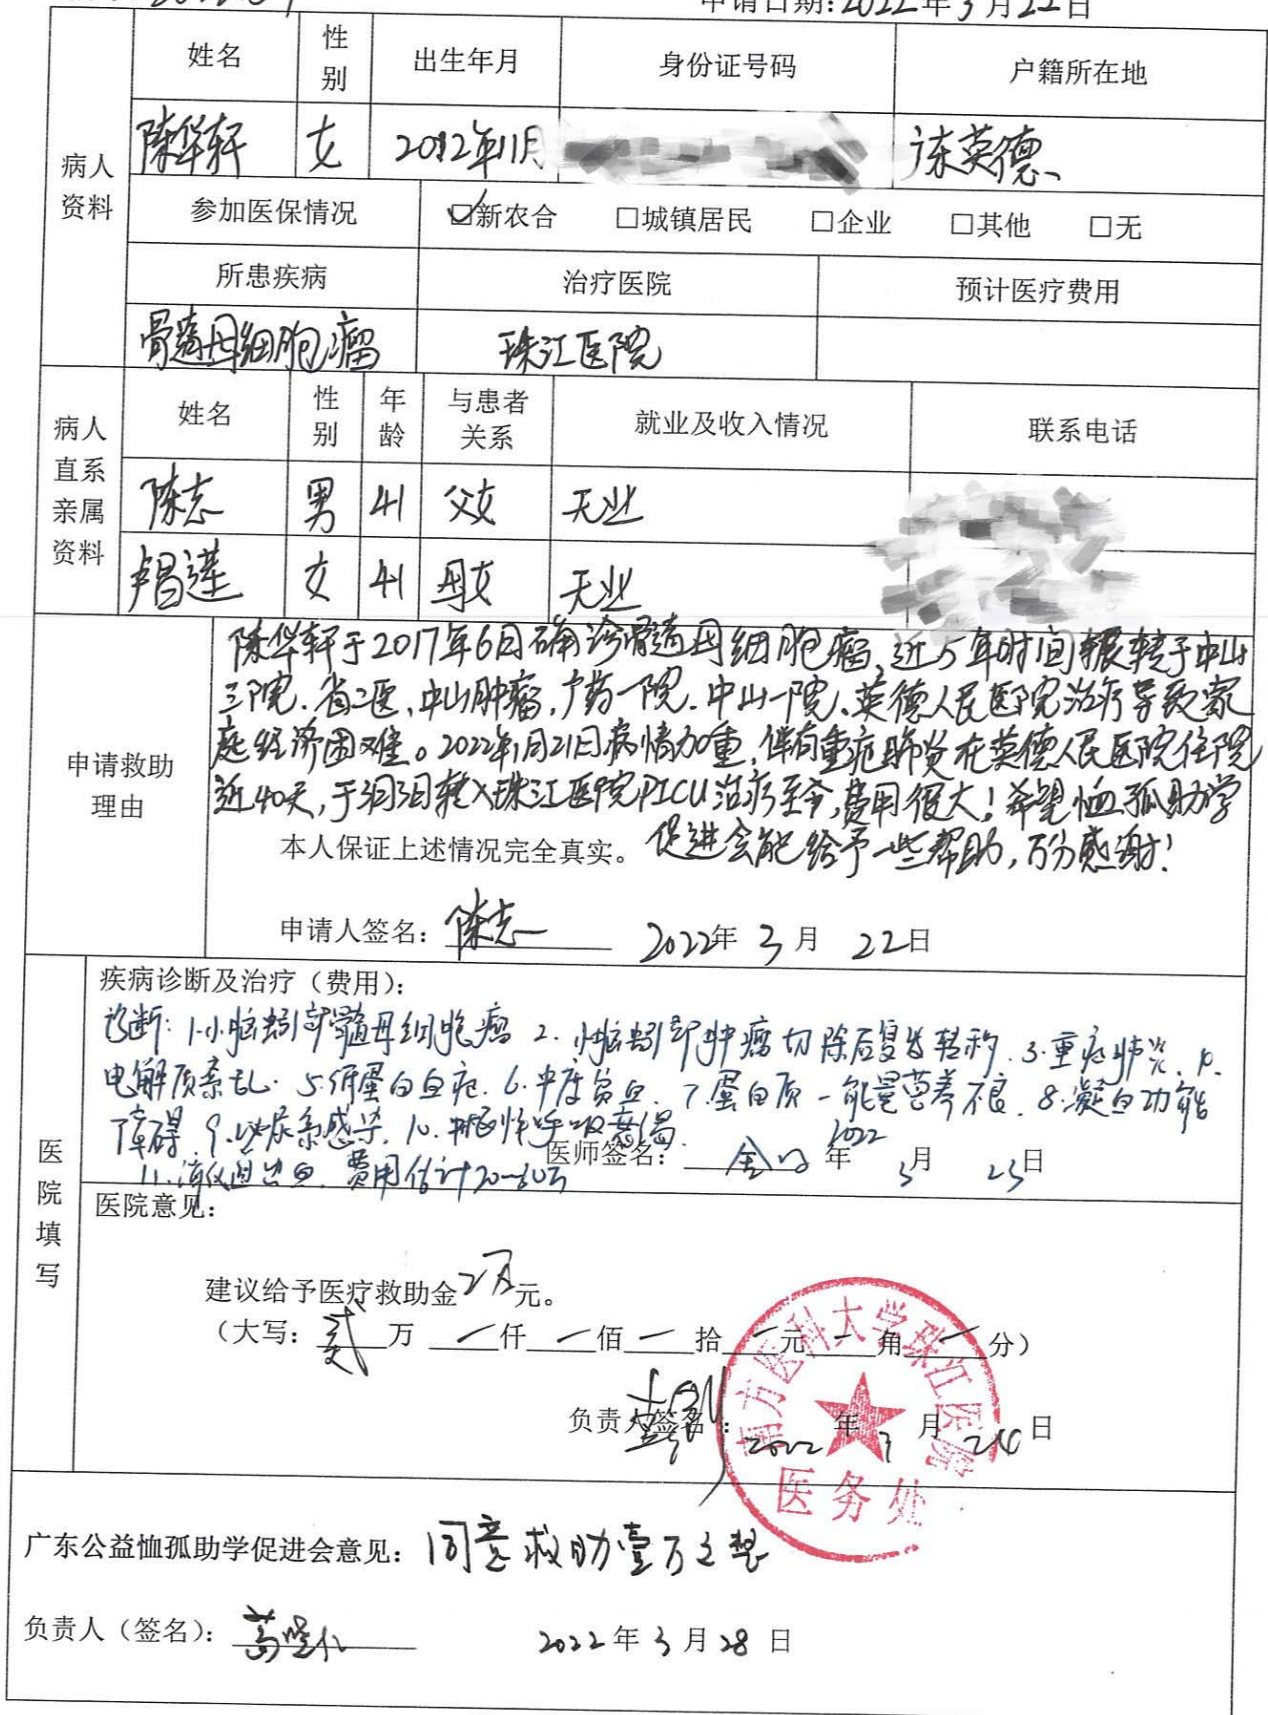 申请日期:2022年3月22日
姓名 性别 出生年月 身份证号码 户籍所在地
病人资料
陈华轩 女 2012年11月 广东英德、
参加医保情况 ☑新农合 □城镇居民 □企业 □其他 □无
所患疾病 治疗医院 预计医疗费用
骨髓母细胞瘤 珠江医院
病人直系亲属资料
姓名 性别 年龄 与患者关系 就业及收入情况 联系电话
陈志 男 41 父女 无业
卢昌莲 女 41 母女 无业
申请救助理由
陈华轩于2017年6月确诊骨髓母细胞瘤,近5年时间辗转于中山
三院、省二医、中山肿瘤,广药一院、中山一院、英德人民医院治疗导致家
庭经济困难。2022年1月21日病情加重,伴有重症肺炎在英德人民医院住院
近40天,于3月3日转入珠江医院PICU治疗至今,费用很大!希望恤孤助学
促进会能给予一些帮助,万分感谢!
本人保证上述情况完全真实。
申请人签名:陈志 2022年3月22日
医院填写
疾病诊断及治疗(费用):
诊断:1.小脑蚓部髓母细胞瘤 2.小脑蚓部肿瘤切除后复发转移.3.重症肺炎.4.
电解质紊乱.5.低蛋白血症.6.中度贫血.7.蛋白质-能量营养不良.8.凝血功能
障碍 9.泌尿系感染.10.中枢性呼吸衰竭.
11.消化道出血.费用估计20-60万
医师签名: 2022年3月23日
医院意见:
建议给予医疗救助金2万元。
(大写:贰万 一仟一佰一拾一元一角一分)
负责人签名: 2022年3月24日
南方医科大学珠江医院
医务处
广东公益恤孤助学促进会意见:同意救助壹万元整
负责人(签名): 2022年3月28日